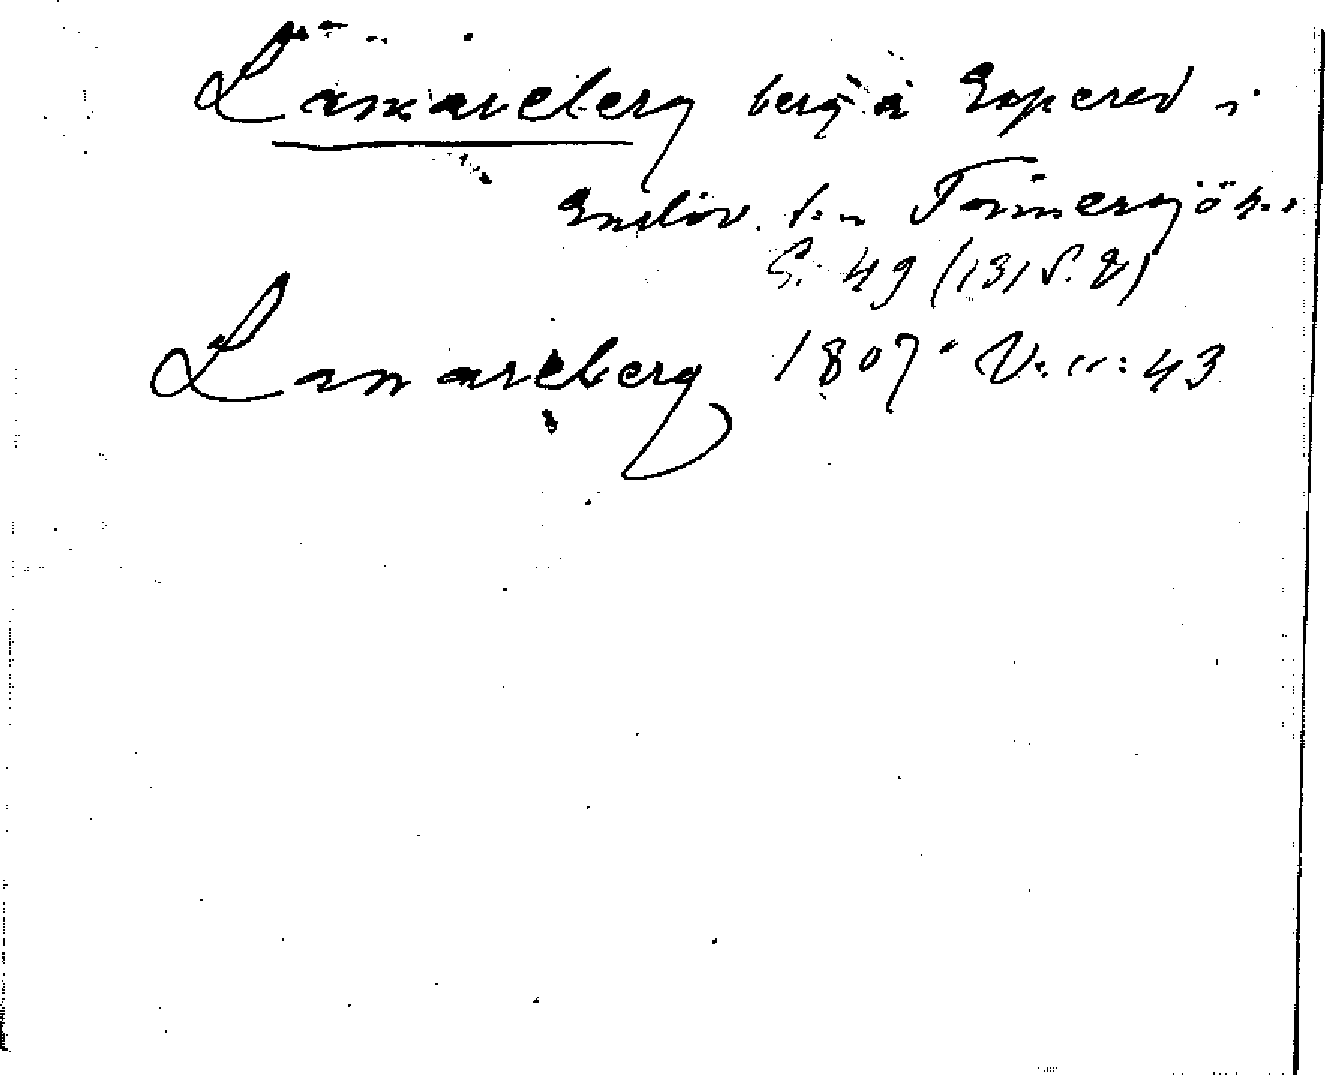 Lamareberg berg å Espered i
Enslöv. s:n Tönnersjö h:d
S. 49 (131 S. 8)
Lamareberg 1807 V: 11: 43